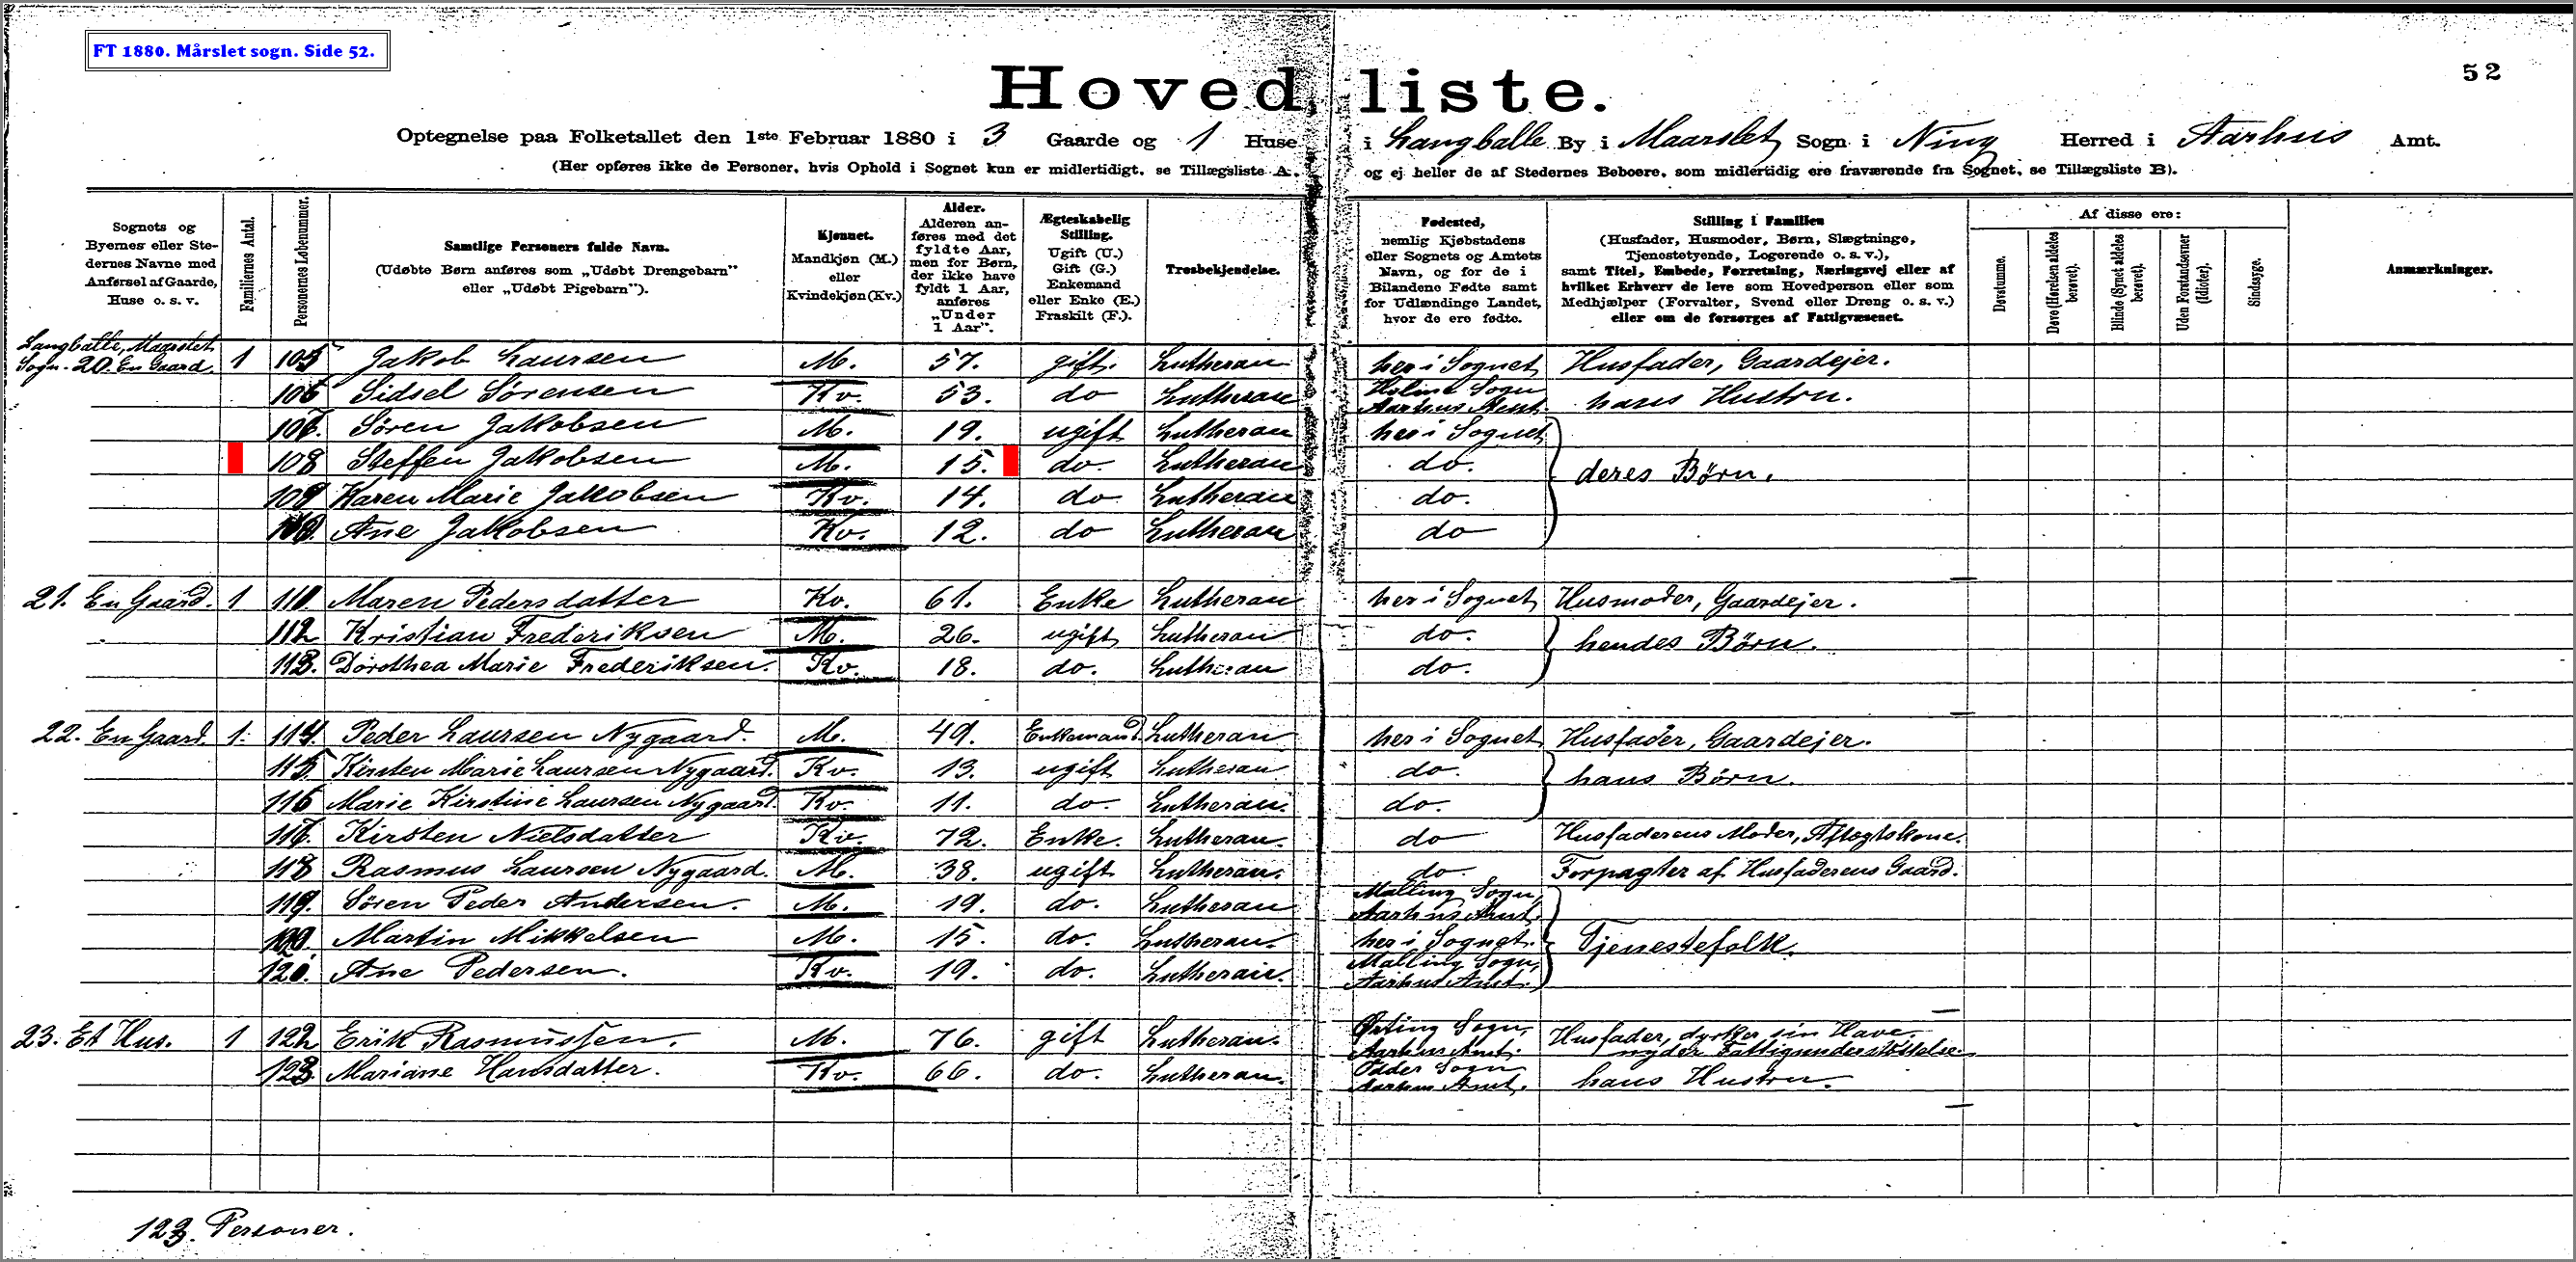 FT 1880. Mårslet sogn. Side 52.
52
Hovedliste.
Optegnelse paa Folketallet den 1ste Februar 1880 i 3 Gaarde og 1 Huse i Langballe By i Maarslet Sogn i Ning Herred i Aarhus Amt.
(Her opføres ikke de Personer, hvis Ophold i Sognet kun er midlertidigt, se Tillægsliste A., og ej heller de af Stedernes Beboere, som midlertidig ere fraværende fra Sognet, se Tillægsliste B).
Sognets og Byernes eller Stedernes Navne med Anførsel af Gaarde, Huse o. s. v.
Familiernes Antal.
Personernes Løbenummer.
Samtlige Personers fulde Navn.
(Udøbte Børn anføres som „Udøbt Drengebarn" eller „Udøbt Pigebarn").
Kjønnet.
Mandkjøn (M.) eller Kvindekjøn (Kv.)
Alder.
Alderen anføres med det fyldte Aar, men for Børn, der ikke have fyldt 1 Aar, anføres „Under 1 Aar".
Ægteskabelig Stilling.
Ugift (U.) Gift (G.) Enkemand eller Enke (E.) Fraskilt (F.).
Trosbekjendelse.
Fødested,
nemlig Kjøbstadens eller Sognets og Amtets Navn, og for de i Bilandene Fødte samt for Udlændinge Landet, hvor de ere fødte.
Stilling i Familien
(Husfader, Husmoder, Børn, Slægtninge, Tjenestetyende, Logerende o. s. v.),
samt Titel, Embede, Forretning, Næringsvej eller af hvilket Erhverv de leve som Hovedperson eller som Medhjælper (Forvalter, Svend eller Dreng o. s. v.) eller om de forsørges af Fattigvæsenet.
Af disse ere:
Døvstumme.
Døve (Hørelsen aldeles berøvet).
Blinde (Synet aldeles berøvet).
Uden Forstandsevner (Idioter).
Sindssyge.
Anmærkninger.
Langballe, Maarslet
Sogn. 20. En Gaard 1 105 Jakob Laursen M. 57. gift. Lutheran her i Sognet Husfader, Gaardejer.
106 Sidsel Sørensen Kv. 53. do Lutheran Holme Sogn Aarhus Amt. hans Hustru.
107. Søren Jakobsen M. 19. ugift Lutheran her i Sognet
108 Steffen Jakobsen M. 15. do. Lutheran do. deres Børn.
109 Karen Marie Jakobsen Kv. 14. do Lutheran do.
110. Ane Jakobsen Kv. 12. do Lutheran do
21. En Gaard. 1 111. Maren Pedersdatter Kv. 61. Enke Lutheran her i Sognet Husmoder, Gaardejer.
112 Kristian Frederiksen M. 26. ugift Lutheran do. hendes Børn.
113. Dorothea Marie Frederiksen. Kv. 18. do. Lutheran do.
22. En Gaard. 1. 114. Peder Laursen Nygaard. M. 49. Enkemand. Lutheran her i Sognet Husfader, Gaardejer.
115. Kirsten Marie Laursen Nygaard. Kv. 13. ugift Lutheran do. hans Børn.
116 Marie Kirstine Laursen Nygaard. Kv. 11. do. Lutheran. do.
117. Kirsten Nielsdatter Kv. 72. Enke. Lutheran. do Husfaderens Moder, Aftægtskone.
118 Rasmus Laursen Nygaard. M. 38. ugift Lutheran. do. Forpagter af Husfaderens Gaard.
119. Søren Peder Andersen. M. 19. do. Lutheran Malling Sogn, Aarhus Amt.
120. Martin Mikkelsen M. 15. do. Lutheran. her i Sognet. Tjenestefolk.
121. Ane Pedersen. Kv. 19. do. Lutheran. Malling Sogn, Aarhus Amt.
23. Et Hus. 1 122 Erik Rasmussen. M. 76. gift Lutheran. Ørting Sogn, Aarhus Amt. Husfader, dyrker sin Have, nyder Fattigunderstøttelse.
123. Mariane Hansdatter. Kv. 66. do. Lutheran. Odder Sogn Aarhus Amt. hans Hustru.
123. Personer.